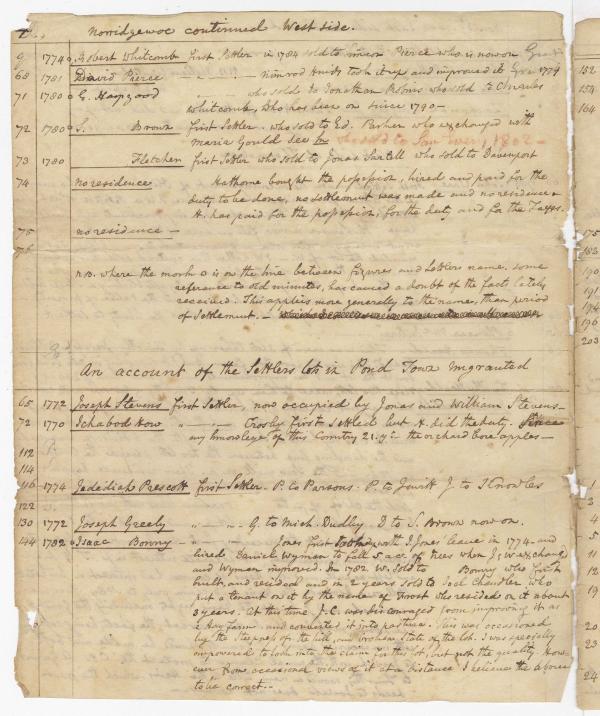 Norridgewoc continued West side.
9 1774 Robert Whitcomb first Settler in 1784 sold to Simeon Pierce who is now on
68 1781 David Pierce " - " - Nimrod Hinds took it up and improved it 1779
71 1780 o G. Hapgood " who sold to Jonathan who sold to Charles
Whitcomb, Who has been on since 1790 -
72 1780 o S. Brown first Settler. who sold to Ed. Parker who exchanged with
Maria Gould See sold to 1802 -
73 1780 Fletcher first Settler who sold to Jonas Sartell who sold to Davenport
74 no residence Hathorne bought the possession, hired and paid for the
duty to be done, no settlement was made and no residence
H. has paid for the possession, for the duty and for the Taxes.
75 no residence -
76
N.B. where the mark o is on the line between figures and Settlers name, some
reference to old minutes, has caused a doubt of the facts lately
received. This applies more generally to the name, than period
of Settlement. -
An account of the Settlers lots in Pond Town ungranted
65 1772 Joseph Stevens first Settler, now occupied by Jonas and William Stevens -
72 1770 Ichabod How " - " - Crosby first Settled but H. did the duty. Since
my knowlege of this Country 21. ys the orchard bore apples -
112
114
116 1774 Jedediah Prescott first Settler. P. to Parsons. P. to Jewitt J. to J Knowles
122
130 1772 Joseph Greely " - " - G. to Mich. Dudley D to S. Brown now on.
144 1782 o Isaac Bonny - " - " - Jones first with S Jones leave in 1774. and
hired Daniel Wyman to fall 5 acr. of trees when J & W exchang
and Wyman improved. In 1782 W. sold to Bonny who first
built, and resided and in 2 years sold to Joel Chandler who
put a tenant on it by the name of Frost who resided on it about
3 years. At this time J. C. was discouraged from improving it as
a Hay farm and converted it into pasture. This was occasioned
by the steepness of the hill, and broken state of the lot. I was specially
impowered to look into the claim for this lot, but not the quality. How-
ever from occasional views of it at a distance I believe the above
to be correct. -
152
154
164
175
183
190
191
194
196
203
1
3
4
5
11
12
19
20
23
24